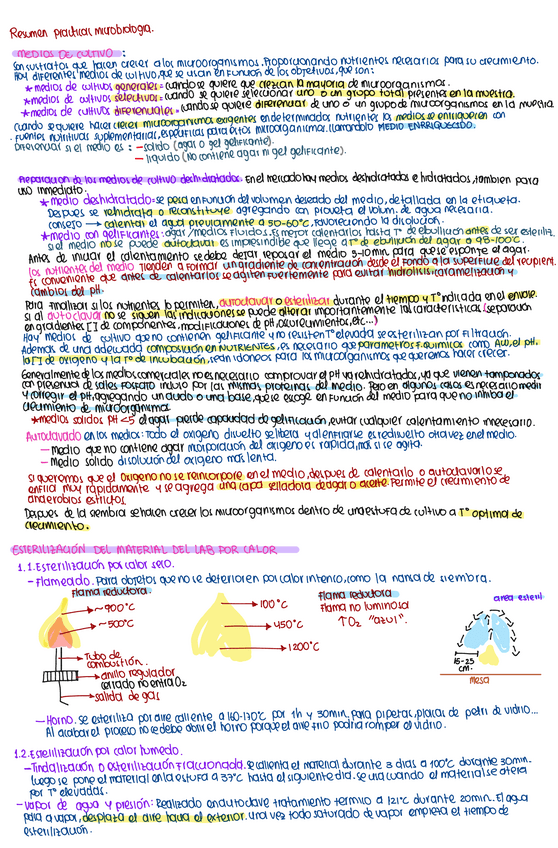 Resumen practicas microbiologia.
MEDIOS DE CULTIVO :
Son sustratos que hacen crecer a los microorganismos. Proporcionando nutrientes necesarios para su crecimiento.
Hay diferentes medios de cultivo, que se usan en funcion de los objetivos, que son:
* medios de cultivos generales = cuando se quiere que crezcan la mayoria de microorganismos.
* medios de cultivos selectivos = cuando se quiere seleccionar uno o un grupo total presentes en la muestra.
* medios de cultivos diferenciales = cuando se quiere diferenciar de uno o un grupo de microorganismos en la muestra
Cuando se quiere hacer crecer microorganismos exigentes en determinados nutrientes los medios se enriquecen con
fuentes nutritivas suplementarias, especificas para estos microorganismos. llamandolo MEDIO ENRIQUECIDO.
Diferenciar si el medio es : — solido (agar o gel gelificante).
— liquido (no contiene agar ni gel gelificante).
Preparacion de los medios de cultivo deshidratados. En el mercado hay medios deshidratados e hidratados, tambien para
uso inmediato.
* medio deshidratado: se pesa en funcion del volumen deseado del medio, detallada en la etiqueta.
Despues se rehidrata o reconstituye agregando con proveta el volum. de agua necesaria.
consejo → calentar el agua previamente a 50-60°C, favoreciendo la disolucion.
* medio con gelificantes: agar/medios fluidos, es mejor calentarlos hasta T° de ebullicion antes de ser esteriliz.
si el medio no se puede autoclavar es imprescindible que llegue a T° de ebullicion del agar o 98-100°C.
Antes de iniciar el calentamiento se debe dejar reposar el medio 5-10min para que se esponje el agar.
Los nutrientes del medio tienden a formar un gradiente de concentracion desde el fondo a la superficie del recipient.
Es conveniente que antes de calentarlos se agiten fuertemente para evitar hidrolisis, caramelizacion y
cambios del pH.
Para finalizar si los nutrientes lo permiten, autoclavar o esterilizar durante el tiempo y T° indicada en el envase.
si al autoclavar no se siguen las indicaciones se puede alterar importantemente las caracteristicas (separacion
en gradientes [] de componentes, modificaciones de pH, oscurecimientos, etc...)
Hay medios de cultivo que no contienen gelificante y no resisten T° elevada, se esterilizan por filtracion.
Ademas de una adecuada composicion en NUTRIENTES, es necesario que parametros f. quimicos como Aw, el pH.
la [] de oxigeno y la T° de incubacion, sean idoneos para los microorganismos que queremos hacer crecer.
Generalmente de los medios comerciales no es necesario comprovar el pH ya rehidratados, ya que vienen tamponados
con presencia de sales fosfato incluso por las mismas proteinas del medio. Pero en algunos casos es necesario medir
y corregir el pH, agregando un acido o una base, que se escoge en funcion del medio para que no inhiba el
crecimiento de microorganismos.
* medios solidos pH<5 el agar pierde capacidad de gelificacion, evitar cualquier calentamiento innecesario.
Autoclavado en los medios: Todo el oxigeno disuelto se libera y al enfriarse es redisuelto otra vez en el medio.
— medio que no contiene agar incorporacion del oxigeno es rapida, mas si se agita.
— medio solido disolucion del oxigeno mas lenta.
Si queremos que el oxigeno no se reincorpore en el medio, despues de calentarlo o autoclavarlo se
enfria muy rapidamente y se agrega una capa selladora de agar o aceite. Permite el crecimiento de
anaerobios estrictos
Despues de la siembra se hacen crecer los microorganismos dentro de una estufa de cultivo a T° optima de
crecimiento.
ESTERILIZACIÓN DEL MATERIAL DEL LAB POR CALOR
1.1. Esterilizacion por calor seco.
— Flameado. Para objetos que no se deterioren por calor intenso, como la nansa de siembra.
flama reductora.
~900°C
~500°C
Tubo de
combustion.
anillo regulador
cerrado no entra O2
salida de gas
100°C
450°C
1200°C
flama reductora
flama no luminosa
↑O2 "azul".
area esteril
15-25
cm.
mesa
— Horno. se esteriliza por aire caliente a 160-170°C por 1h y 30min, para pipetas, placas de petri de vidrio...
Al acabar el proceso no se debe abrir el horno porque el aire frio podria romper el vidrio.
1.2. Esterilizacion por calor humedo.
— Tindalización o esterilización Fraccionada. se calienta el material durante 3 dias a 100°C durante 30min.
luego se pone el material en la estufa a 37°C hasta el siguiente dia. se usa cuando el material se altera
por T° elevadas.
— vapor de agua y presión: Realizado en autoclave tratamiento termico a 121°C durante 20min. El agua
pasa a vapor, desplaza el aire hacia el exterior. una vez todo saturado de vapor empieza el tiempo de
esterilización.